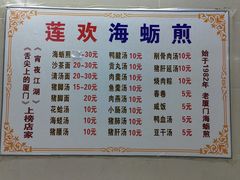 莲欢海蛎煎
《宵夜江湖》
《舌尖上的厦门》
上榜店家
海蛎煎20-30元
沙茶面20-30元
清汤面20-30元
猪脚汤15-20元
猪脚面20元
花蛤汤10元
海蛎汤10元
猪腰汤10元
鸭腿汤10元
贡丸汤10元
肉羹汤10元
肉燕汤10元
鱼丸汤10元
小肠汤10元
猪肚汤10元
猪肝汤10元
剔骨肉汤10元
猪肝汤10元
烧肉粽10元
春卷5元
咸饭5元
鸭血汤5元
豆干汤5元
始于1982年 老厦门海蛎煎